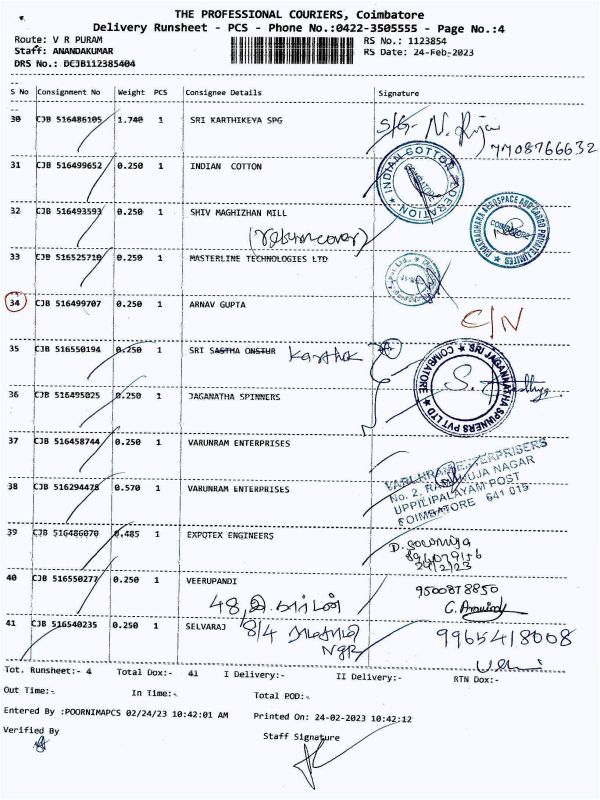 THE PROFESSIONAL COURIERS, Coimbatore
Delivery Runsheet - PCS - Phone No.:0422-3505555 - Page No.:4
Route: V R PURAM RS No.: 1123854
Staff: ANANDAKUMAR RS Date: 24-Feb-2023
DRS No.: DCJB112385404
S No Consignment No Weight PCS Consignee Details Signature
30 CJB 516486105 1.740 1 SRI KARTHIKEYA SPG
7708766632
31 CJB 516499652 0.250 1 INDIAN COTTON
INDIAN COTTON FEDERATION
32 CJB 516493593 0.250 1 SHIV MAGHIZHAN MILL
COIMBATORE
33 CJB 516525710 0.250 1 MASTERLINE TECHNOLOGIES LTD
34 CJB 516499707 0.250 1 ARNAV GUPTA
C/N
35 CJB 516550194 0.250 1 SRI SASTHA ONSTUR
36 CJB 516495025 0.250 1 JAGANATHA SPINNERS
SRI JAGANAATHA SPINNERS PVT LTD COIMBATORE
37 CJB 516458744 0.250 1 VARUNRAM ENTERPRISES
38 CJB 516294478 0.570 1 VARUNRAM ENTERPRISES
VARUNRAM ENTERPRISERS
No. 2, RAMANUJA NAGAR
UPPILIPALAYAM POST
COIMBATORE 641 015
39 CJB 516486070 0.485 1 EXPOTEX ENGINEERS
24/2/23
40 CJB 516550277 0.250 1 VEERUPANDI
9500878850
41 CJB 516540235 0.250 1 SELVARAJ 8/4
9965418008
Tot. Runsheet:- 4 Total Dox:- 41 I Delivery:- II Delivery:- RTN Dox:-
Out Time:- In Time:- Total POD:-
Entered By :POORNIMAPCS 02/24/23 10:42:01 AM Printed On: 24-02-2023 10:42:12
Verified By Staff Signature